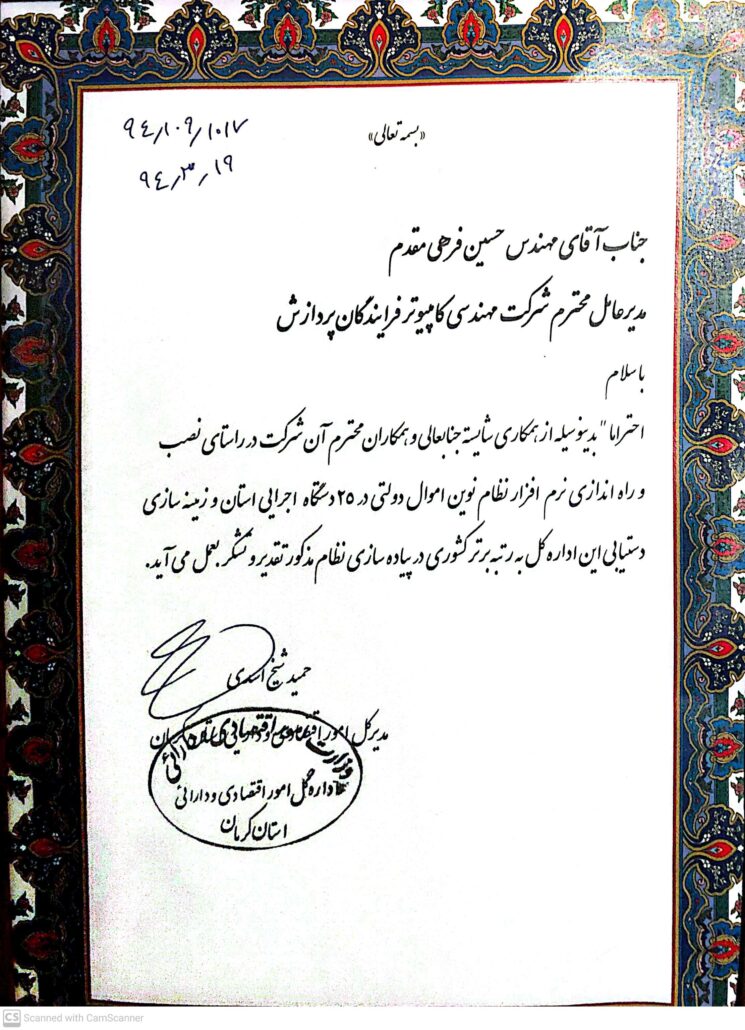 «بسمه تعالی»
۹۴/۱۰۹/۱۰۱۷
۹۴/۳/۱۹
جناب آقای مهندس حسین فرهی مقدم
مدیرعامل محترم شرکت مهندسی کامپیوتر فرایندگان پردازش
با سلام
احتراما" بدینوسیله از همکاری شایسته جنابعالی و همکاران محترم آن شرکت در راستای نصب
و راه اندازی نرم افزار نظام نوین اموال دولتی در ۲۵ دستگاه اجرایی استان و زمینه سازی
دستیابی این اداره کل به رتبه برتر کشوری در پیاده سازی نظام مذکور تقدیر و تشکر بعمل می آید.
حمید شیخ اسدی
مدیرکل امور اقتصادی و دارایی استان کرمان
وزارت امور اقتصادی و دارائی
اداره کل امور اقتصادی و دارائی
استان کرمان
CS Scanned with CamScanner